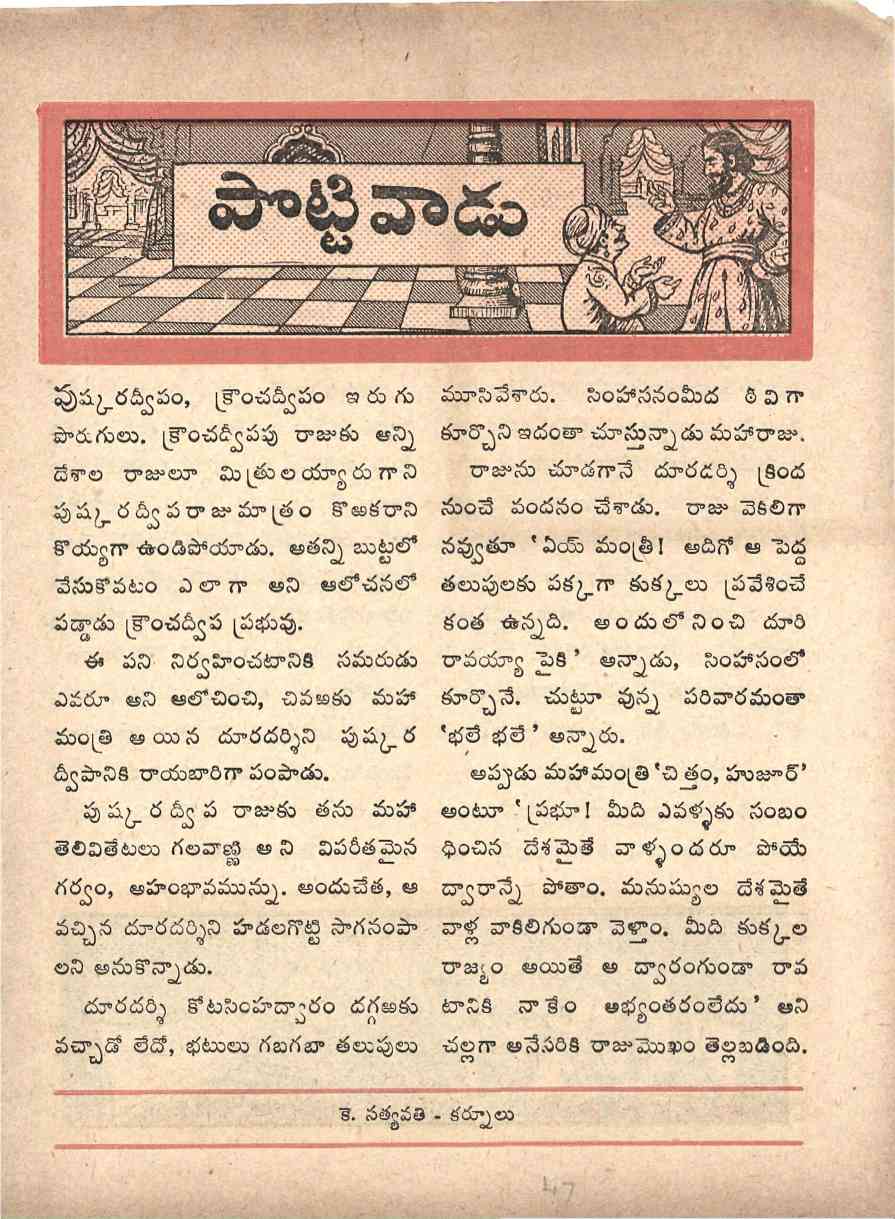 పొట్టివాడు
పుష్కరద్వీపం, క్రౌంచద్వీపం ఇరుగు
పొరుగులు. క్రౌంచద్వీపపు రాజుకు అన్ని
దేశాల రాజులూ మిత్రులయ్యారుగాని
పుష్కరద్వీపరాజుమాత్రం కొఱకరాని
కొయ్యగా ఉండిపోయాడు. అతన్ని బుట్టలో
వేసుకోవటం ఎలాగా అని ఆలోచనలో
పడ్డాడు క్రౌంచద్వీప ప్రభువు.
ఈ పని నిర్వహించటానికి సమరుడు
ఎవరూ అని ఆలోచించి, చివఱకు మహా
మంత్రి అయిన దూరదర్శిని పుష్కర
ద్వీపానికి రాయబారిగా పంపాడు.
పుష్కరద్వీప రాజుకు తను మహా
తెలివితేటలు గలవాణ్ణి అని విపరీతమైన
గర్వం, అహంభావమున్ను. అందుచేత, ఆ
వచ్చిన దూరదర్శిని హడలగొట్టి సాగనంపా
లని అనుకొన్నాడు.
దూరదర్శి కోటసింహద్వారం దగ్గఱకు
వచ్చాడో లేదో, భటులు గబగబా తలుపులు
మూసివేశారు. సింహాసనంమీద ఠీవిగా
కూర్చొని ఇదంతా చూస్తున్నాడు మహారాజు.
రాజును చూడగానే దూరదర్శి క్రింద
నుంచే వందనం చేశాడు. రాజు వెకిలిగా
నవ్వుతూ ‘ఏయ్ మంత్రీ! అదిగో ఆ పెద్ద
తలుపులకు పక్కగా కుక్కలు ప్రవేశించే
కంత ఉన్నది. అందులోనించి దూరి
రావయ్యా పైకి’ అన్నాడు, సింహాసంలో
కూర్చొనే. చుట్టూ వున్న పరివారమంతా
‘భలే భలే’ అన్నారు.
అప్పుడు మహామంత్రి ‘చిత్తం, హుజూర్’
అంటూ ‘ప్రభూ! మీది ఎవళ్ళకు సంబం
ధించిన దేశమైతే వాళ్ళందరూ పోయే
ద్వారాన్నే పోతాం. మనుష్యుల దేశమైతే
వాళ్ల వాకిలిగుండా వెళ్తాం. మీది కుక్కల
రాజ్యం అయితే ఆ ద్వారంగుండా రావ
టానికి నాకేం అభ్యంతరంలేదు’ అని
చల్లగా అనేసరికి రాజుమొఖం తెల్లబడింది.
కె. సత్యవతి - కర్నూలు
47